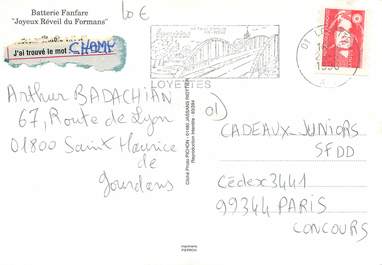 Batterie Fanfare
"Joyeux Réveil du Formans"
J'ai trouvé le mot CHAMP
10 €
LOYETTES
01
Arthur BADACHIAN
67, Route de Lyon
01800 Saint Maurice
de
Gourdans
CADEAUX JUNIORS
SFDD
Cédex 3441
99344 PARIS
CONCOURS
Cliché Photo PICHON - 01480 JASSANS RIOTTIER
Reproduction interdite
Imprimerie